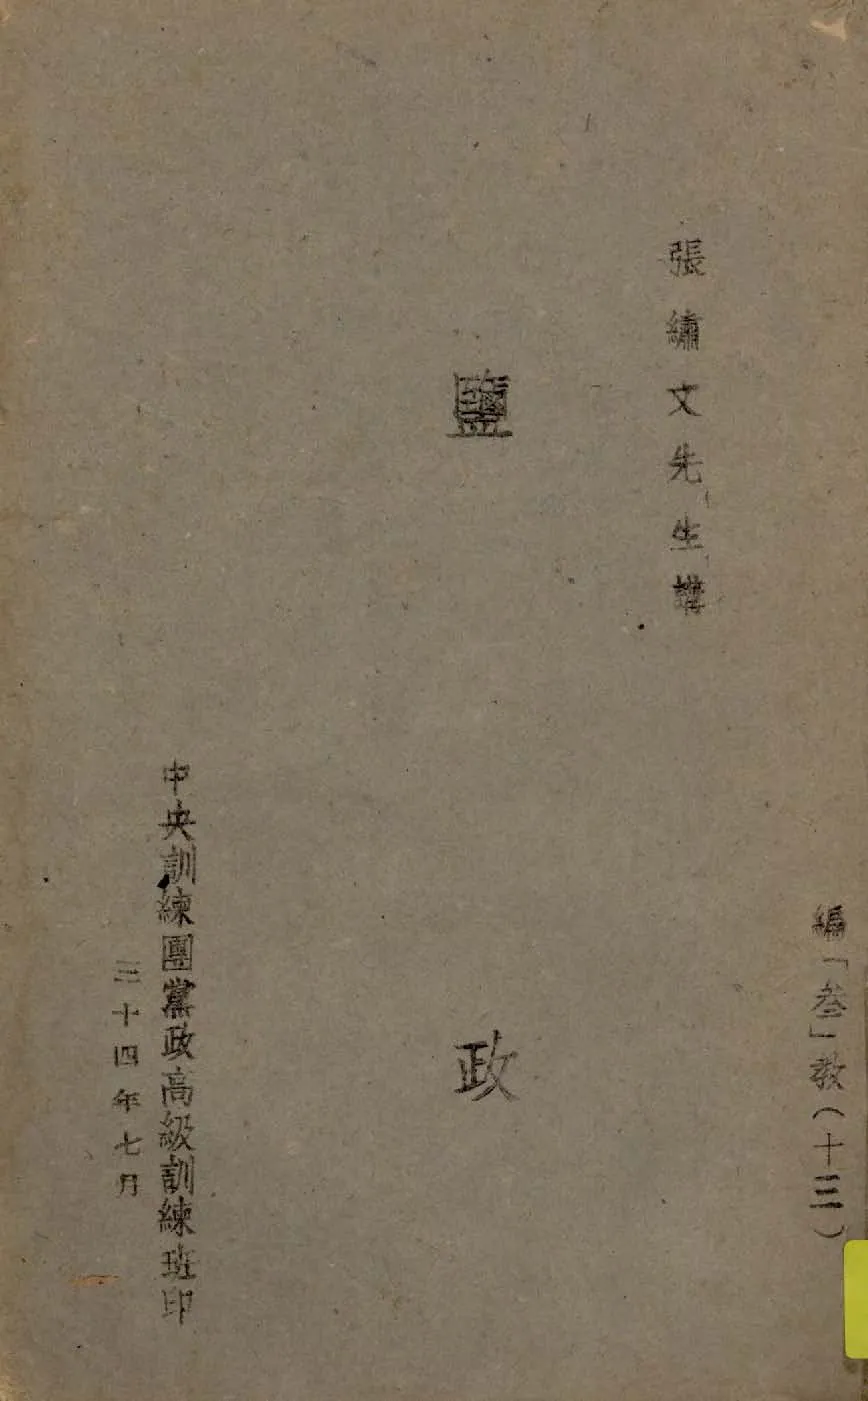 編「叁」教(十三)
張繡文先生講
鹽政
中央訓練團黨政高級訓練班印
三十四年七月